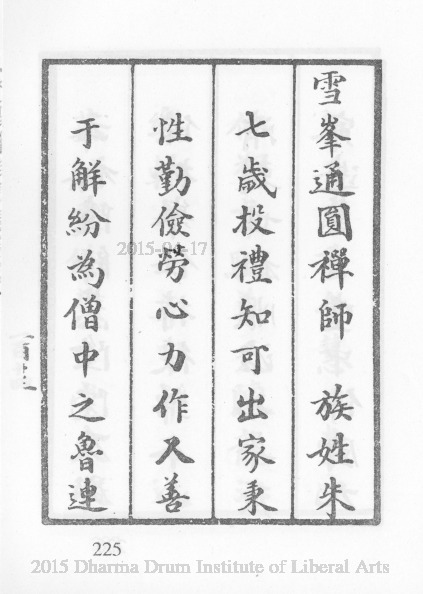 雪峯通圓禪師　族姓朱
七歲投禮知可出家秉
性勤儉勞心力作又善
于解紛為僧中之魯連
2015-04-17
225
2015 Dharma Drum Institute of Liberal Arts